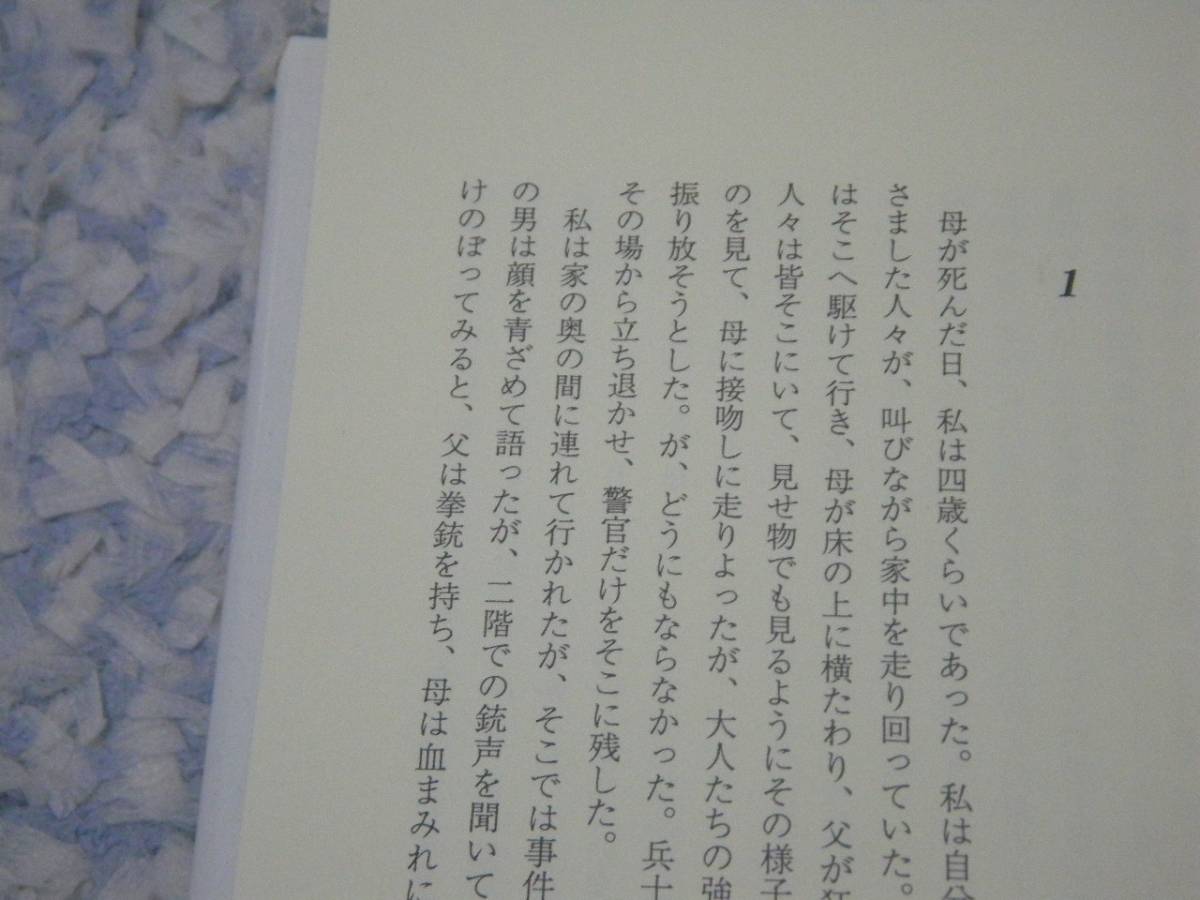 1
母が死んだ日、私は四歳くらいであった。私は自分
さました人々が、叫びながら家中を走り回っていた。
はそこへ駆けて行き、母が床の上に横たわり、父が狂
人々は皆そこにいて、見せ物でも見るようにその様子
のを見て、母に接吻しに走りよったが、大人たちの強
振り放そうとした。が、どうにもならなかった。兵士
その場から立ち退かせ、警官だけをそこに残した。
私は家の奥の間に連れて行かれたが、そこでは事件
の男は顔を青ざめて語ったが、二階での銃声を聞いて
けのぼってみると、父は拳銃を持ち、母は血まみれに